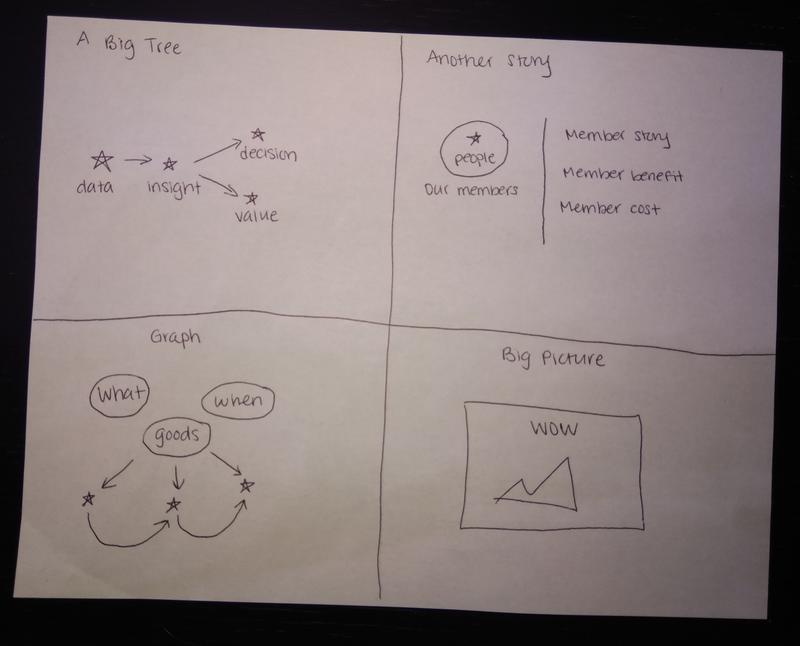 A Big Tree
data
insight
decision
value
Another story
people
Our members
Member story
Member benefit
Member cost
Graph
what
when
goods
Big Picture
WOW